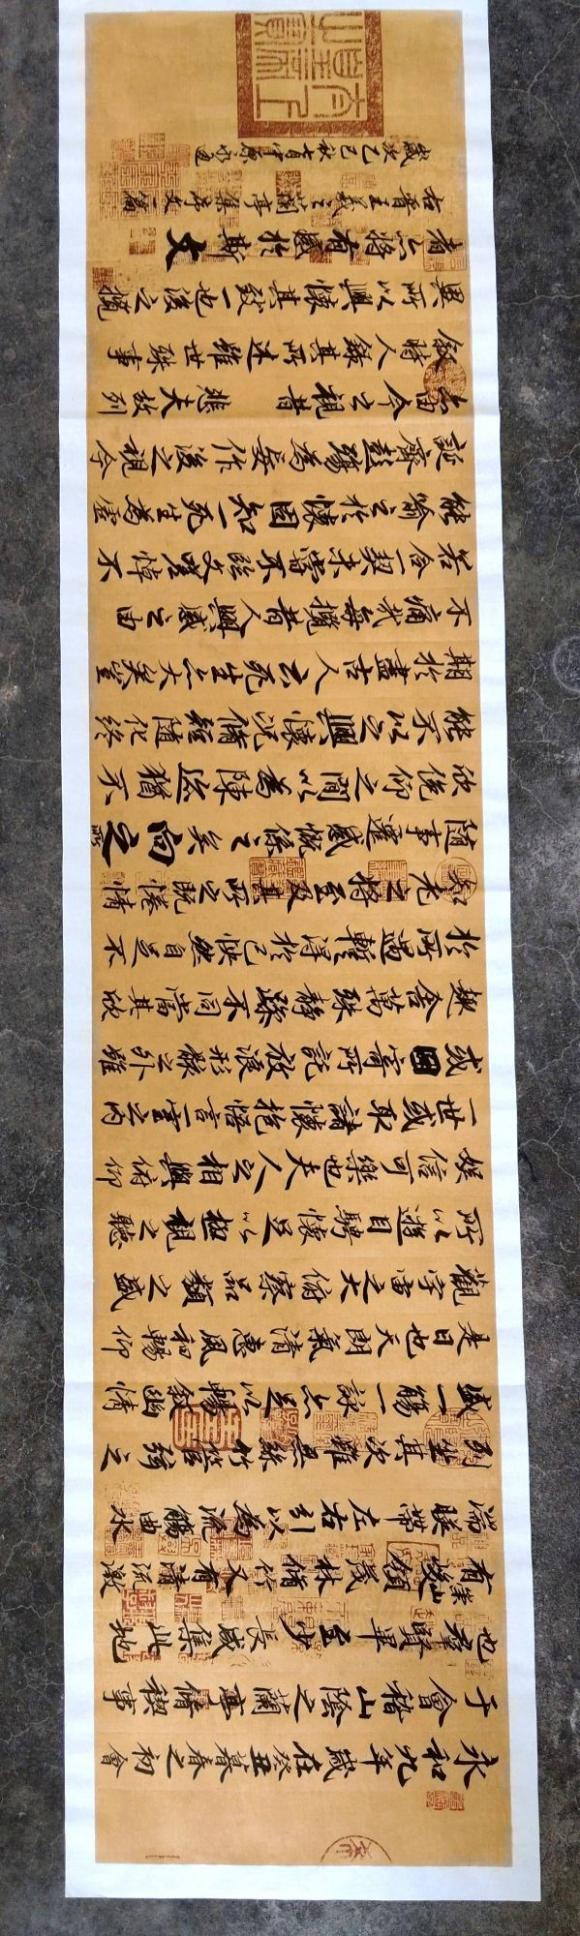 永和九年歲在癸丑暮春之初會
于會稽山陰之蘭亭脩禊事
也群賢畢至少長咸集此地
有崇山峻領茂林脩竹又有清流激
湍暎帶左右引以為流觴曲水
列坐其次雖無絲竹管弦之
盛一觴一詠亦足以暢敘幽情
是日也天朗氣清惠風和暢仰
觀宇宙之大俯察品類之盛
所以遊目騁懷足以極視之聽
娛信可樂也夫人之相與俯仰
一世或取諸懷抱悟言一室之內
或因寄所託放浪形骸之外雖
趣舍萬殊靜躁不同當其欣
於所遇暫得於己怏然自足不
知老之將至及其所之既倦情
隨事遷感慨係之矣向之所
欣俛仰之間以為陳迹猶不
能不以之興懷況脩短隨化終
期於盡古人云死生亦大矣豈
不痛哉每攬昔人興感之由
若合一契未嘗不臨文嗟悼不
能喻之於懷固知一死生為虛
誕齊彭殤為妄作後之視今
亦由今之視昔悲夫故列
敘時人錄其所述雖世殊事
異所以興懷其致一也後之攬
者亦將有感於斯文
右晉王羲之蘭亭集序文篇
歲次乙巳秋七月中